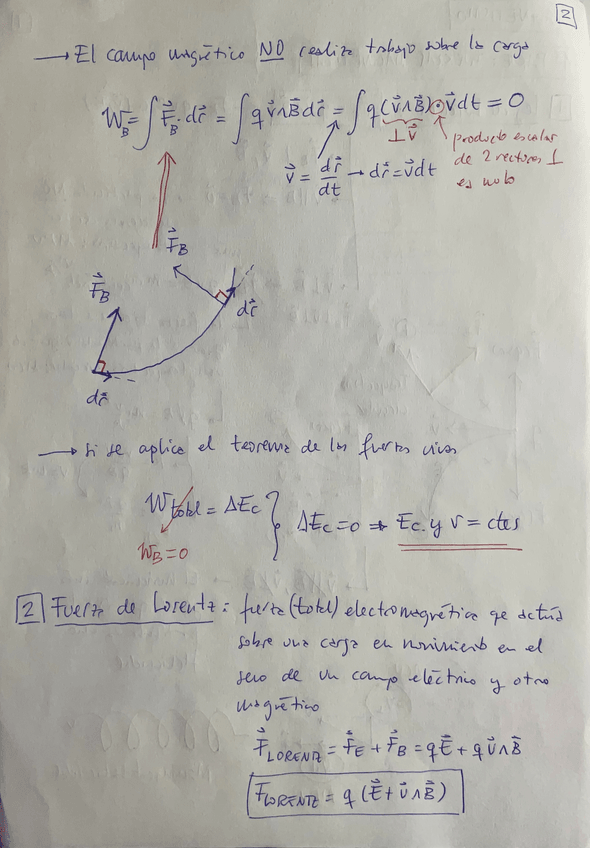 2
→ El campo magnético NO realiza trabajo sobre la carga
W_B = ∫ F⃗_B · dr⃗ = ∫ q v⃗∧B⃗ dr⃗ = ∫ q(v⃗∧B⃗)⊙v⃗dt = 0
⊥v⃗
producto escalar
de 2 vectores ⊥
es nulo
v⃗ = dr⃗/dt → dr⃗ = v⃗dt
F⃗_B
F⃗_B
dr⃗
dr⃗
→ Si se aplica el teorema de las fuerzas vivas
W_total = ΔEc } ΔEc = 0 → Ec y v = ctes
W_B = 0
2 Fuerza de Lorentz: fuerza (total) electromagnética qe actúa
sobre una carga en movimiento en el
seno de un campo eléctrico y otro
magnético
F⃗_LORENTZ = F⃗_E + F⃗_B = qE⃗ + qv⃗∧B⃗
F_LORENTZ = q (E⃗ + v⃗∧B⃗)